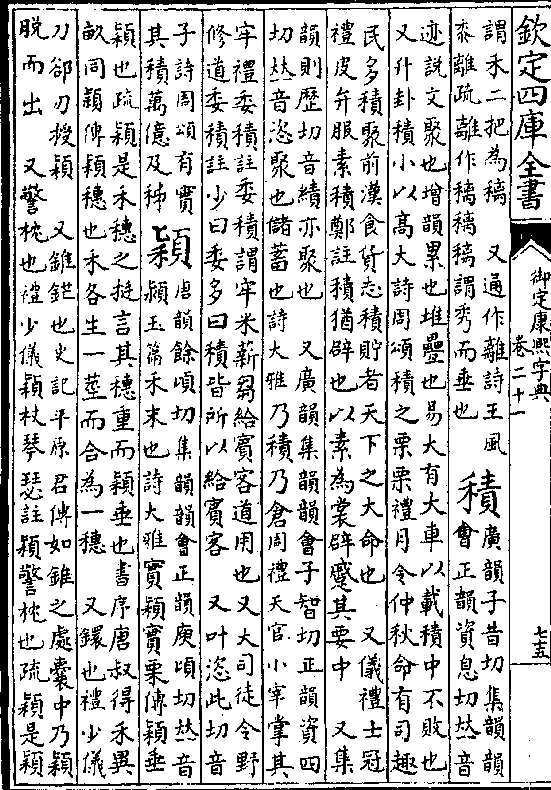 欽定四庫全書
御定康熙字典
卷二十一
七十五
謂禾二把為稿　又通作離詩王風
黍離疏離作稿稿稿謂秀而垂也　積廣韻子昔切集韻韻
會正韻資息切𠀤音
迹說文聚也增韻累也堆疊也易大有大車以載積中不敗也
又升卦積小以高大詩周頌積之栗栗禮月令仲秋命有司趣
民多積聚前漢食貨志積貯者天下之大命也　又儀禮士冠
禮皮弁服素積鄭註積猶辟也以素為裳辟蹙其要中　又集
韻則歷切音績亦聚也　又廣韻集韻韻會子智切正韻資四
切𠀤音恣聚也儲蓄也詩大雅乃積乃倉周禮天官小宰掌其
牢禮委積註委積謂牢米薪芻給賓客道用也又大司徒令野
修道委積註少曰委多曰積皆所以給賓客　又叶恣此切音
子詩周頌有實
其積萬億及秭　穎唐韻餘頃切集韻韻會正韻庾頃切𠀤音
潁玉篇禾末也詩大雅實穎實栗傳穎垂
穎也疏穎是禾穗之挺言其穗重而穎垂也書序唐叔得禾異
畝同穎傳穎穗也禾各生一莖而合為一穗　又鐶也禮少儀
刀卻刃授穎　又錐鋩也史記平原君傳如錐之處囊中乃穎
脫而出　又警枕也禮少儀穎杖琴瑟註穎警枕也疏穎是穎